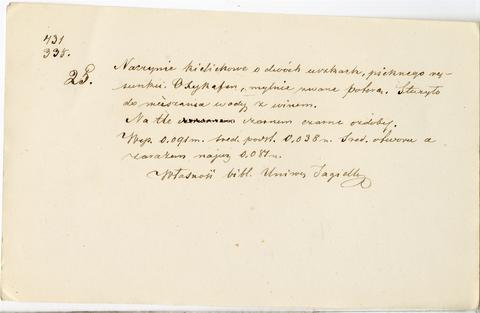 431
338.
25.
Naczynie kielichowe o dwóch uszkach, pięknego ry-
sunku. Oxykafen, mylnie zwane potera. Służyło
do mieszania wody z winem.
Na tle czarnem czarne ozdoby.
Wys. 0.091m. śred. podst. 0,038 m. Śred. otworu a
zarazem najw. 0.081 m.
Własność bibl. Uniwer. Jagiell.